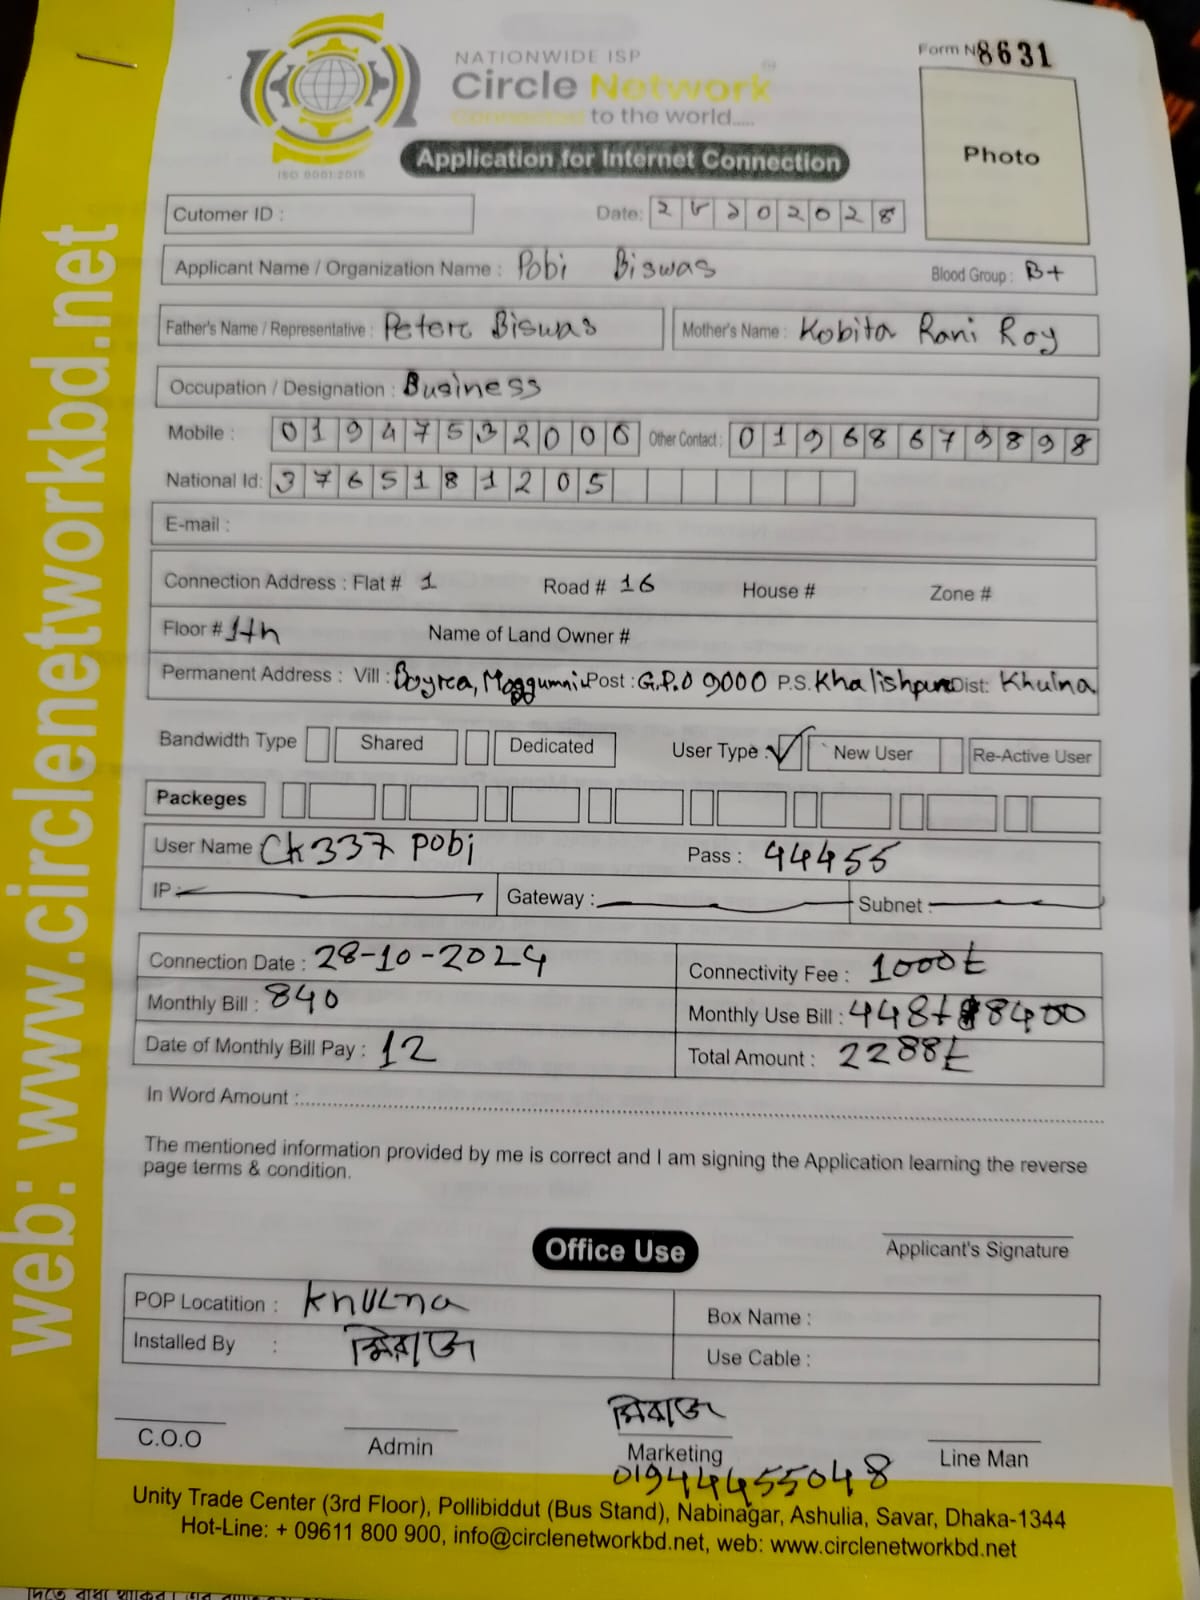 Form No 8631
NATIONWIDE ISP
Circle Network
Connected to the world.....
ISO 9001:2015
Application for Internet Connection
Photo
Cutomer ID :
Date: ২৮১০২০২৪
Applicant Name / Organization Name : Pobi Biswas Blood Group : B+
Father's Name / Representative : Peterc Biswas Mother's Name : Kobita Rani Roy
Occupation / Designation : Business
Mobile : 01947532006 Other Contact : 01968679898
National Id: 3765181205
E-mail :
Connection Address : Flat # 1 Road # 16 House # Zone #
Floor # 1th Name of Land Owner #
Permanent Address : Vill : Boyrca, Post : G.P.O 9000 P.S. Khalishpur Dist: Khulna
Bandwidth Type Shared Dedicated User Type : New User Re-Active User
Packeges
User Name Ck337 pobi Pass : 44455
IP : Gateway : Subnet :
Connection Date : 28-10-2024 Connectivity Fee : 1000৳
Monthly Bill : 840 Monthly Use Bill : 448+ 8400
Date of Monthly Bill Pay : 12 Total Amount : 2288৳
In Word Amount :
The mentioned information provided by me is correct and I am signing the Application learning the reverse
page terms & condition.
Office Use
Applicant's Signature
POP Locatition : Khulna Box Name :
Installed By : মিরাজ Use Cable :
মিরাজ
C.O.O Admin Marketing Line Man
01944455048
Unity Trade Center (3rd Floor), Pollibiddut (Bus Stand), Nabinagar, Ashulia, Savar, Dhaka-1344
Hot-Line: + 09611 800 900, info@circlenetworkbd.net, web: www.circlenetworkbd.net
web: www.circlenetworkbd.net